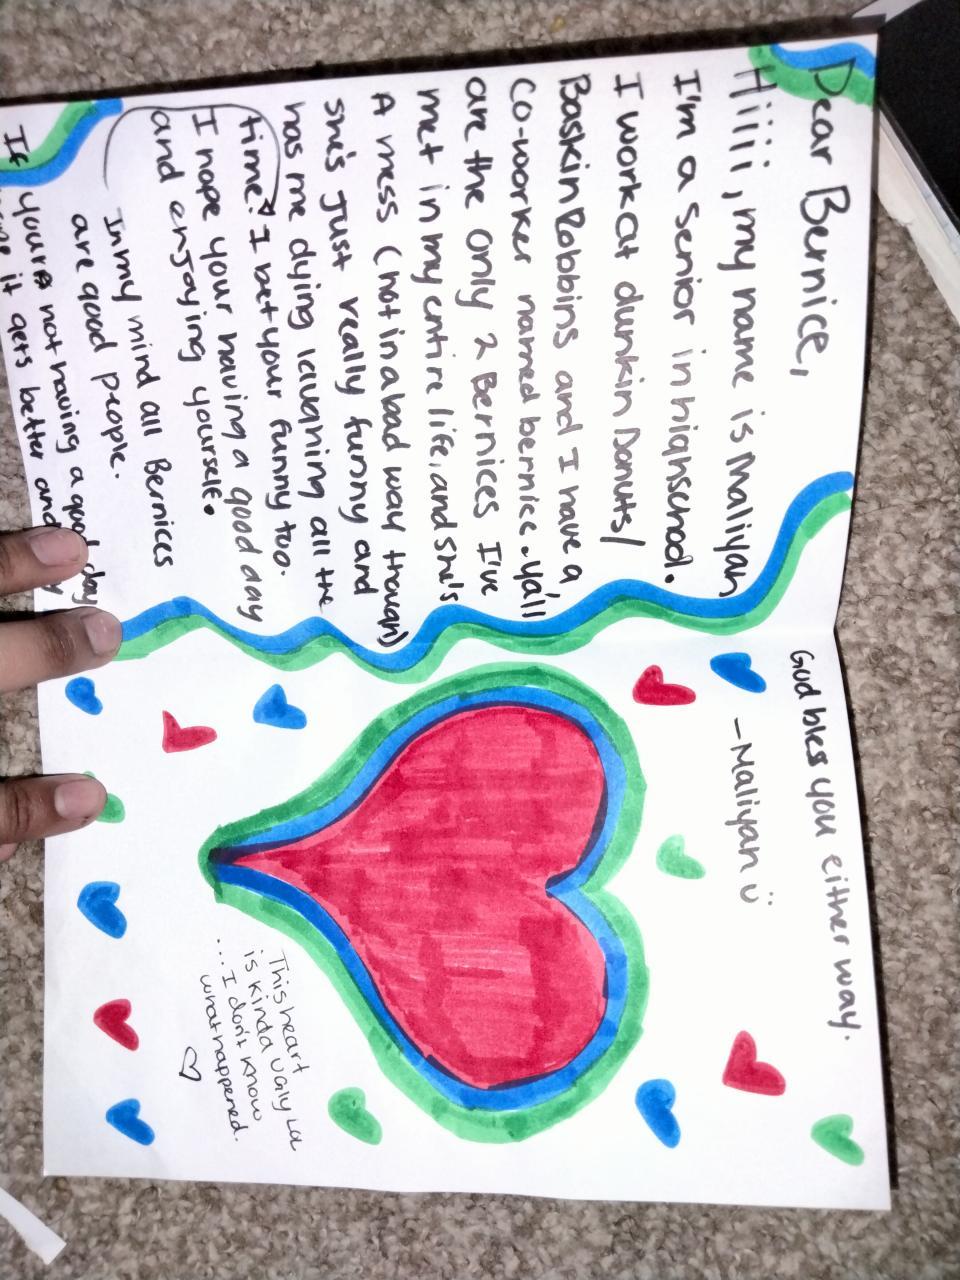 Dear Bernice,
Hiiii, my name is Maliyah
I'm a senior in highschool.
I work at dunkin Donuts/
BaskinRobbins and I have a
Co-worker named bernice. ya'll
are the only 2 Bernices I've
met in my entire life, and she's
A mess (not in a bad way though)
she's just really funny and
has me dying laughing all the
time! I bet your funny too.
I hope your having a good day
and enjoying yourself.
In my mind all Bernices
are good people.
If your not having a good day
it gets better and
God bless you either way.
-Maliyah ü
This heart
is kinda ugly LOL
... I don't know
what happened.